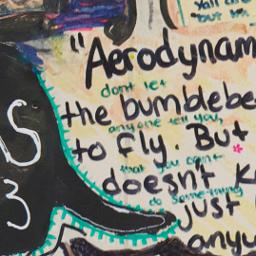 Yall are
but im
"Aerodynam
dont let
the bumblebe
anyone tell you,
to fly. But
that you can't
doesn't K
do something
just
anyw
S
3